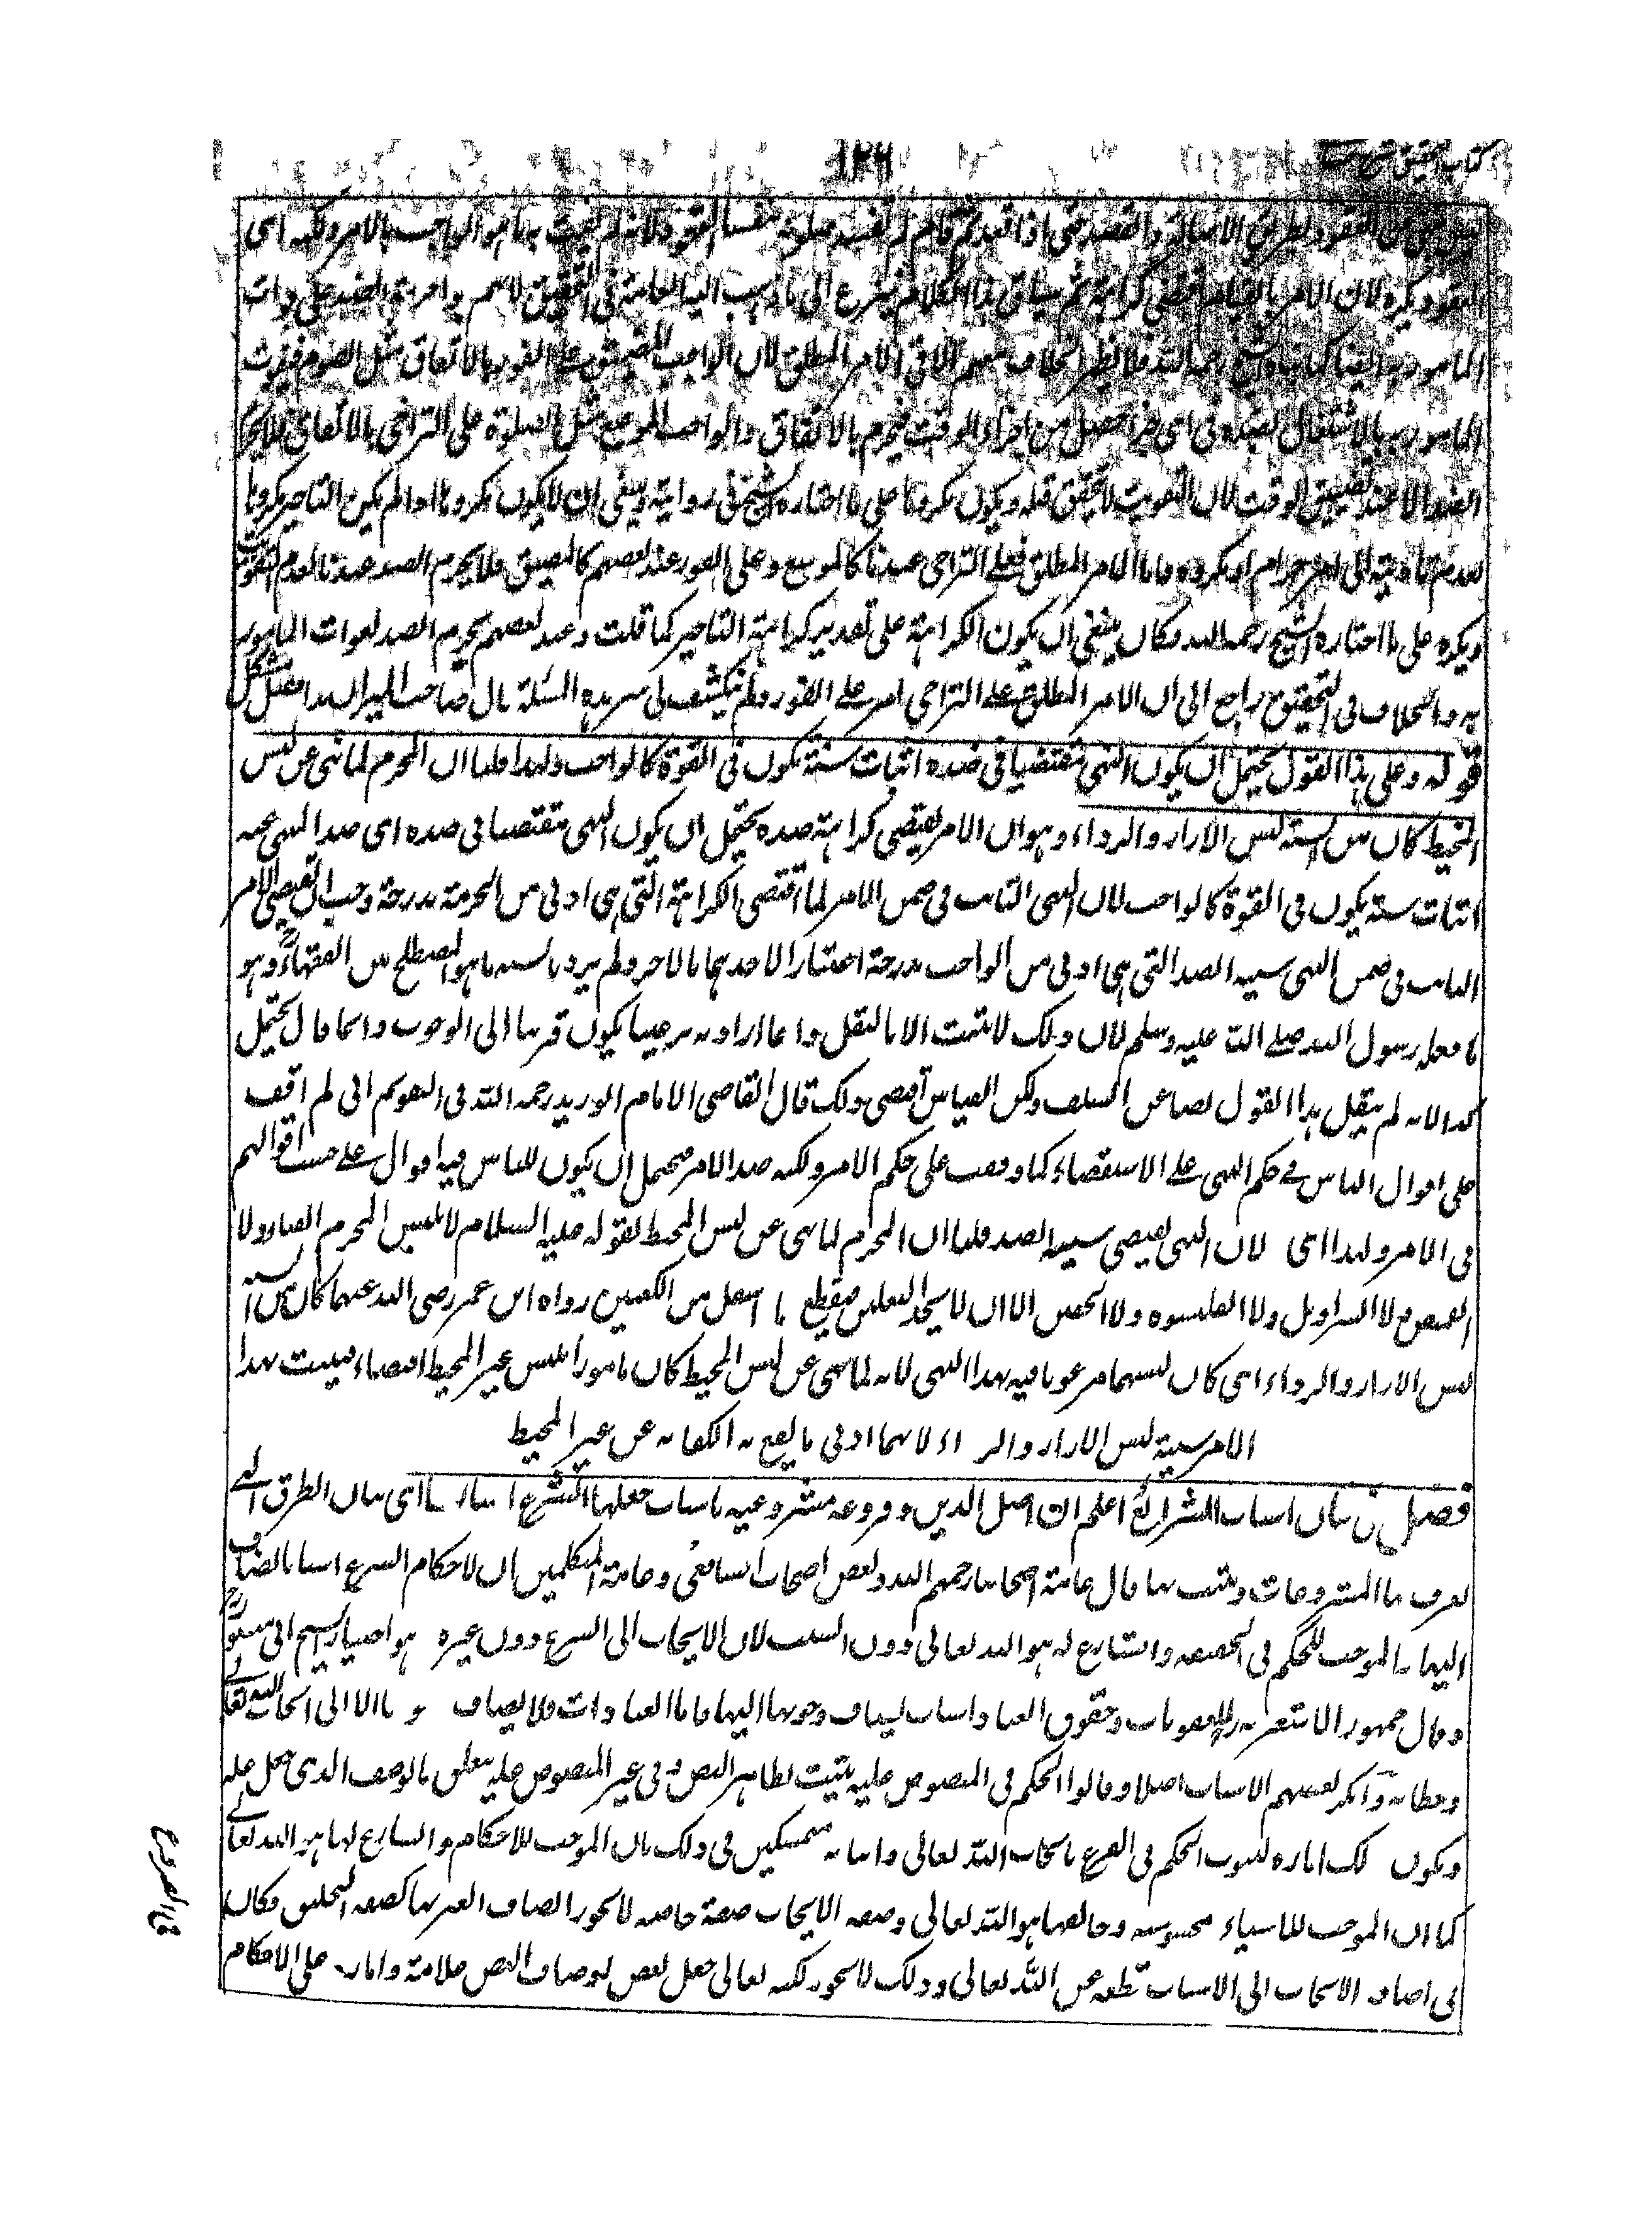 كتاب التحقيق شرح
١٢٦
عن القعود بطريق الاصالة والقصد حتى اذا قعد ثم قام لم تفسد صلوته بنفس القعود لانه لم يفت به ما هو الواجب بالامر ولكنه اى
القعود يكره لان الامر بالقيام اقتضى كراهته ثم سياق هذا الكلام ينزع الى ما ذهب اليه العامة فى التحقيق لانهم حرمة الضد على فوات
المامور به ايضا كما بناه الشيخ رحمه الله فلا يظهر الخلاف معهم الا فى الامر المطلق لان الواجب المضيق على الفور بالاتفاق مثل الصوم فيفوت
المامور به بالاشتغال بضده فى اى جزء حصل من اجزاء الوقت فيحرم بالاتفاق والواجب الموسع مثل الصلوة على التراخى بالاتفاق فلا يحرم
الضد الا عند تضييق الوقت لان التفويت لا يتحقق قبله ويكون مكروها على ما اختاره الشيخ فى رواية وينبغى ان لا يكون مكروها اذا لم يكن التاخير مكروها
لعدم تاديته الى امر حرام او مكروه فاما الامر المطلق فعلى التراخى عندنا كالموسع وعلى الفور عند بعضهم كالمضيق فلا يحرم الضد عندنا لعدم التفويت
ويكره على ما اختاره الشيخ رحمه الله وكان ينبغى ان يكون الكراهة على تقدير كراهة التاخير كما قلت وعند بعضهم يحرم الضد لفوات المامور
به والخلاف فى التحقيق راجع الى ان الامر المطلق على التراخى ام على الفور ولم ينكشف لى سر هذه المسئلة قال صاحب الميزان هذا فصل مشكل
قوله وعلى هذا القول يحتمل ان يكون النهى مقتضيا فى ضده اثبات سنة تكون فى القوة كالواجب ولهذا قلنا ان المحرم لما نهى عن لبس
المخيط كان من السنة لبس الازار والرداء وهو ان الامر يقتضى كراهة ضده يحتمل ان يكون النهى مقتضيا فى ضده اى ضد المنهى عنه
اثبات سنة يكون فى القوة كالواجب لان النهى الثابت فى ضمن الامر لما اقتضى الكراهة التى هى ادنى من الحرمة بدرجة وجب ان يقتضى الامر
الثابت فى ضمن النهى سنية الضد التى هى ادنى من الواجب بدرجة اعتبارا لاحدهما بالاخر ولم يرد بالسنة ما هو المصطلح بين الفقهاء وهو
ما فعله رسول الله صلى الله عليه وسلم لان ذلك لا يثبت الا بالنقل وانما اراد به ترغيبا يكون قريبا الى الوجوب وانما قال يحتمل
كذا لانه لم ينقل هذا القول نصا عن السلف ولكن القياس اقتضى ذلك قال القاضى الامام ابو زيد رحمه الله فى التقويم انى لم اقف
على اقوال الناس فى حكم النهى على الاستقصاء كما وقفت على حكم الامر ولكنه ضد الامر فيحتمل ان يكون للناس فيه اقوال على حسب اقوالهم
فى الامر ولهذا اى لان النهى يقتضى سنية الضد قلنا ان المحرم لما نهى عن لبس المخيط لقوله عليه السلام لا يلبس المحرم القباء ولا
القميص ولا السراويل ولا القلنسوة ولا الخفين الا ان لا يجد النعلين فيقطع ما اسفل من الكعبين رواه ابن عمر رضى الله عنهما كان من السنة
لبس الازار والرداء اى كان لبسهما مرغوبا فيه بهذا النهى لانه لما نهى عن لبس المخيط كان مامورا بلبس غير المخيط اقتضاء فيثبت بهذا
الامر سنية لبس الازار والرداء لانهما ادنى ما يقع به الكفاية عن غير المخيط
فصل فى بيان اسباب الشرائع اعلم ان اصل الدين وفروعه مشروعة باسباب جعلها الشرع اسبابا اى بيان الطرق التى
تعرف بها المشروعات وتثبت بها قال عامة اصحابنا رحمهم الله وبعض اصحاب الشافعى وعامة المتكلمين ان لاحكام الشرع اسبابا تضاف
اليها والموجب للحكم فى الحقيقة والشارع له هو الله تعالى دون السبب لان الايجاب الى الشرع دون غيره هو اختيار الشيخ ابى منصور رح
وقال جمهور الاشعرية للعقوبات وحقوق العباد اسباب يضاف وجوبها اليها فاما العبادات فلا يضاف وجوبها الا الى ايجاب الله تعالى
وخطابه وانكر بعضهم الاسباب اصلا وقالوا الحكم فى المنصوص عليه يثبت بظاهر النص وفى غير المنصوص عليه يتعلق بالوصف الذى جعل علة
ويكون ذلك امارة لثبوت الحكم فى الفرع بايجاب الله تعالى واثباته متمسكين فى ذلك بان الموجب للاحكام والشارع لها هو الله تعالى
كما ان الموجب للاشياء محسوسة وخالقها هو الله تعالى وصفة الايجاب صفة خاصة لا يجوز اتصاف الغير بها كصفة التخليق فكان
فى اضافة الايجاب الى الاسباب قطعه عن الله تعالى وذلك لا يجوز لكنه تعالى جعل بعض اوصاف النص علامة وامارة على الاحكام